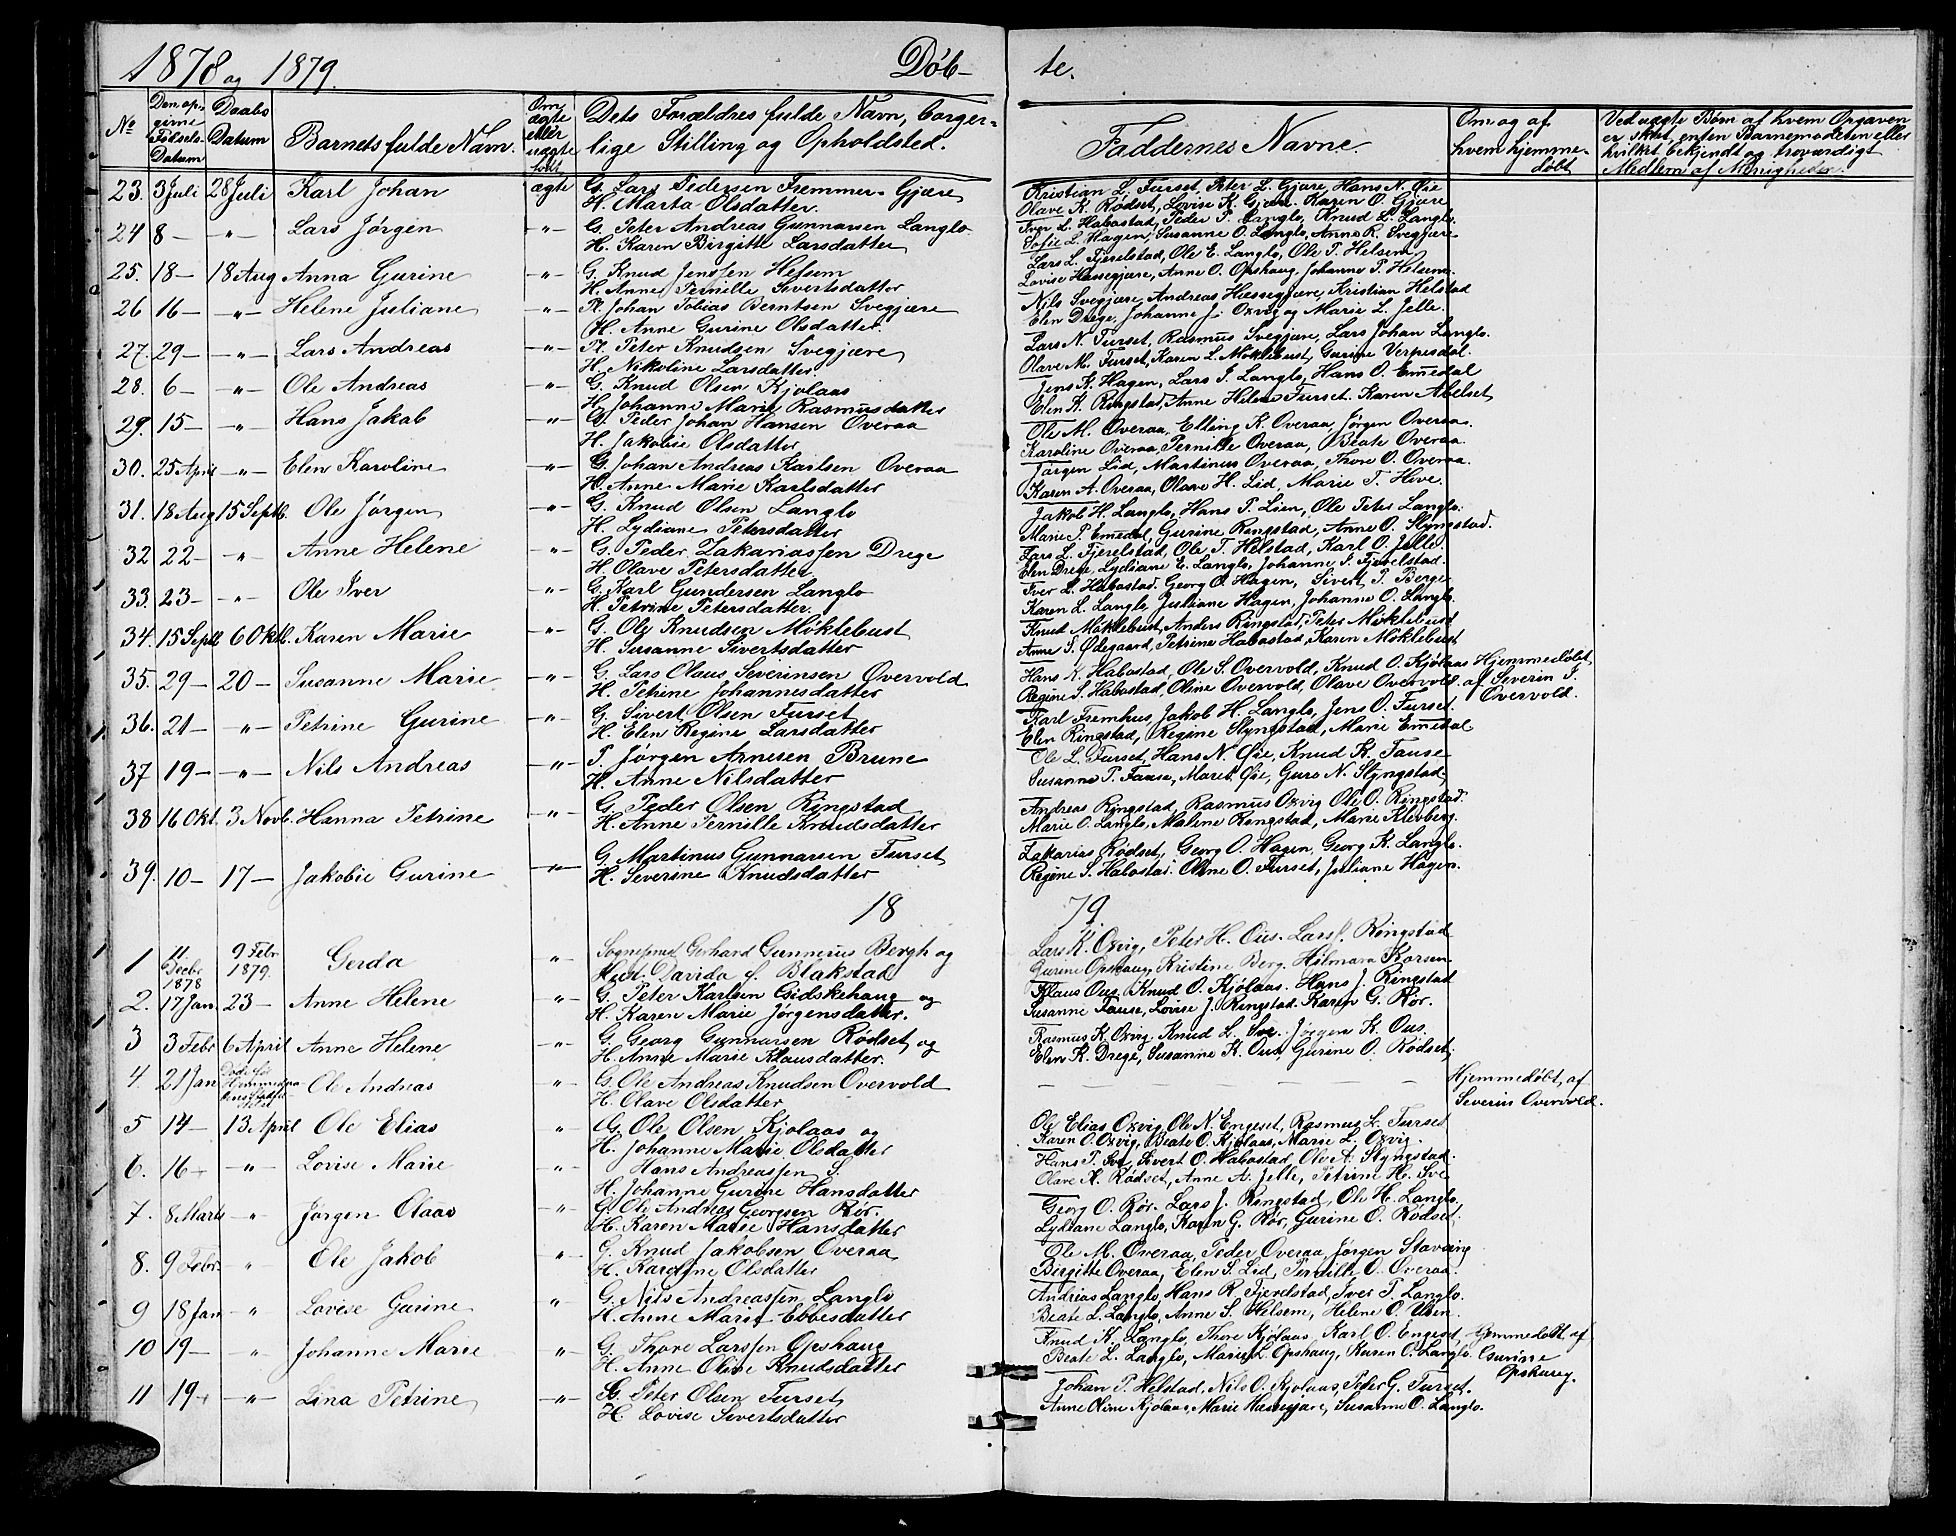 1878 og 1879.
Døb-
te.
No
Den op-
givne
Fødsels-
Datum
Daabs
Datum
Barnets fulde Navn.
Om
ægte
eller
uægte
født
Dets Forældres fulde Navn, borger=
lige Stilling og Opholdsted.
Faddernes Navne.
Om og af
hvem hjemme-
døbt
Ved uægte Børn af hvem Opgaven
er skeet, enten Barnemoderen eller
hvilket bekjendt og troværdigt
Medlem af Menigheden.
23. 3 Juli 28 Juli Karl Johan ægte G. Lars Pedersen Fremmer-Gjære
H. Marta Olsdatter.
Kristian L. Furset, Peter L. Gjære, Hans N. Øie
Olave K. Rødset, Lovise K. Gjære. Karen O. Gjære
24 8 – –"– Lars Jørgen –"– G. Peter Andreas Gunnarsen Langlo
H. Karen Birgitte Larsdatter
Iver L. Habostad, Peder P. Langlo, Knud L. Langlo.
Sofie L. Hagen, Susanne O. Langlo, Anne R. Svegjære
25. 18 – 18 Aug Anna Gurine –"– G. Knud Jenssen Helsem
H. Anne Pernille Sivertsdatter
Lars L. Fjerelstad, Ole E. Langlo, Ole T. Helsem,
Lovise Hæssegjære, Anne O. Opshaug, Johanne P. Helsem.
26 16 – –"– Helene Juliane –"– Pl. Johan Tobias Berntsen Svegjære
H. Anne Gurine Olsdatter.
Nils Svegjære, Andreas Hæssegjære, Kristian Helstad
Elen Drege, Johanne J. Oxvig og Marie L. Jelle.
27. 29 – –"– Lars Andreas –"– Pl. Peter Knudsen Svegjære
H. Nikoline Larsdatter
Lars N. Furset, Rasmus Svegjære, Lars Johan Langlo.
Olave M. Furset, Karen L. Møklebust, Gurine Verpesdal.
28. 6 – –"– Ole Andreas –"– G. Knud Olsen Kjølaas
H. Johanne Marie Rasmusdatter
Jens K. Hagen, Lars J. Langlo, Hans O. Emedal
Elen K. Ringstad, Anne Helene Furset. Karen Abelset
29. 15 – –"– Hans Jakob –"– G. Peder Johan Hansen Overaa
H. Jakobie Olsdatter
Ole M. Overaa, Elling K. Overaa, Jørgen Overaa.
Karoline Overaa, Pernille Overaa, Beate Overaa.
30. 25 April –"– Elen Karoline –"– G. Johan Andreas Karlsen Overaa
H. Anne Marie Karlsdatter
Jørgen Lid, Martinus Overaa, Thore O. Overaa.
Karen A. Overaa, Olave H. Lid, Marie T. Hove.
31. 18 Aug 15 Septb. Ole Jørgen –"– G. Knud Olsen Langlo
H. Lydiane Petersdatter
Jakob H. Langlo, Hans P. Lien, Ole Peter Langlo.
Marie P. Emedal, Gurine Ringstad, Anne O. Slyngstad.
32 22 – –"– Anne Helene –"– G. Peder Zakariassen Drege
H. Olave Petersdatter
Lars L. Fjerelstad, Ole T. Helstad, Karl O. Jelle.
Elen Drege, Lydiane E. Langlo, Johanne S. Fjerelstad.
33. 23 – –"– Ole Iver –"– G. Karl Gundersen Langlo
H. Petrine Petersdatter.
Iver L. Habostad. Georg O. Hagen, Sivert P. Berge
Karen L. Langlo, Juliane Hagen, Johanne O. Langlo.
34. 15 Septb 6 Oktb. Karen Marie –"– G. Ole Knudsen Møklebust
H. Susanne Sivertsdatter
Knud Møklebust, Anders Ringstad, Peter Møklebust
Anne S. Ødegaard, Petrine Habostad, Karen Møklebust
35. 29 – 20 – Susanne Marie –"– G. Lars Olaus Severinsen Overvold
H. Petrine Johannesdatter
Hans K. Habostad, Ole S. Overvold, Knud O. Kjølaas
Regine S. Habostad, Oline Overvold, Olave Overvold.
Hjemmedøbt
af Severin S.
Overvold.
36. 21 – –"– Petrine Gurine –"– G. Sivert Olsen Furset
H. Elen Regine Larsdatter
Karl Fremhus, Jakob H. Langlo, Jens O. Furset
Elen Ringstad, Regine Slyngstad, Marie Emedal
37 19 – –"– Nils Andreas –"– P. Jørgen Arnesen Brune
H. Anne Nilsdatter
Ole L. Furset, Hans N. Øie, Knud K. Fause
Susanne P. Fause, Maret Øie, Guro N. Slyngstad,
38 16 Okt. 3 Novb. Hanna Petrine –"– G. Peder Olsen Ringstad
H. Anne Pernille Knudsdatter
Andreas Ringstad, Rasmus Oxvig Ole O. Ringstad.
Marie O. Langlo, Malene Ringstad, Marie Klevberg.
39. 10 – 17 – Jakobie Gurine –"– G. Martinus Gunnarsen Furset
H. Severine Knudsdatter
Zakarias Rødset, Georg O. Hagen, Georg K. Langlo.
Regine S. Habostad. Oline O. Furset, Juliane Hagen.
18 79.
1 11 Decbr 1878 9 Febr 1879. Gerda " Sognepræst Gerhard Gunnerius Bergh og
Hust. Davida f. Blakstad
Lars K. Oxvig, Peter H. Ous. Lars J. Ringstad
Gurine Opshaug, Kristine Berg. Hilmara Korsen.
2. 17 Jan. 23 – Anne Helene –"– G. Peter Karlsen Gidskehaug og
H. Karen Marie Jørgensdatter.
Klaus Ous, Knud O. Kjølaas. Hans J. Ringstad
Susanne Fause, Lovise J. Ringstad. Karen G. Rør.
3 3 Febr 6 April Anne Helene –"– G. Georg Gunnarsen Rødset og
H. Anne Marie Klausdatter.
Rasmus K. Oxvig, Knud L. Sve. Jørgen K. Ous.
Elen K. Drege, Susanne K. Ous, Gurine O. Rødset,
4. 21 Jan Død før Hjemmedaa-
Ole Andreas –"– G. Ole Andreas Knudsen Overvold
H. Olave Olsdatter
Hjemmedøbt af
Severin Overvold.
5 14 – 13 April Ole Elias " G. Ole Olsen Kjølaas og
H. Johanne Marie Olsdatter
Ole Elias Oxvig, Ole N. Engeset, Rasmus L. Furset
Karen O. Oxvig, Beate O. Kjølaas, Marie L. Oxvig.
6. 16 – –"– Lovise Marie –"– Hans Andreassen S.
H. Johanne Gurine Hansdatter
Hans P. Sve, Sivert O. Habostad, Ole A. Slyngstad.
Olave K. Rødset, Anne A. Jelle, Petrine H. Sve
7. 8 Marts –"– Jørgen Olaus –"– G. Ole Andreas Georgsen Rør.
H. Karen Marie Hansdatter
Georg O. Rør. Lars J. Ringstad, Ole H. Langlo
Lydiane Langlo, Karen G. Rør, Gurine O. Rødset.
8. 9 Febr. –"– Ole Jakob –"– G. Knud Jakobsen Overaa
H. Karoline Olsdatter
Ole M. Overaa, Peder Overaa, Jørgen Stavseng
Birgitte Overaa, Elen S. Lid, Pernille O. Overaa.
9 18 Jan –"– Lovise Gurine –"– G. Nils Andreassen Langlo
H. Anne Marie Ebbesdatter
Andreas Langlo, Hans R. Fjerelstad, Iver P. Langlo.
Beate L. Langlo, Anne S. Helsem, Helene O. Vven.
10 19 – " Johanne Marie –"– G. Thore Larssen Opshaug
H. Anne Oline Knudsdatter
Knud K. Langlo, Thore Kjølaas, Karl O. Engeset
Beate L. Langlo, Marie L. Opshaug, Karen O. Langlo.
Hjemmedøbt af
Gurine
Opshaug.
11 19 – –"– Lina Petrine –"– G. Peter Olsen Furset
H. Lovise Sivertsdatter
Johan P. Helstad, Nils O. Kjølaas, Peder G. Furset.
Anne Oline Kjølaas, Marie Hæssegjære, Susanne O. Langlo.